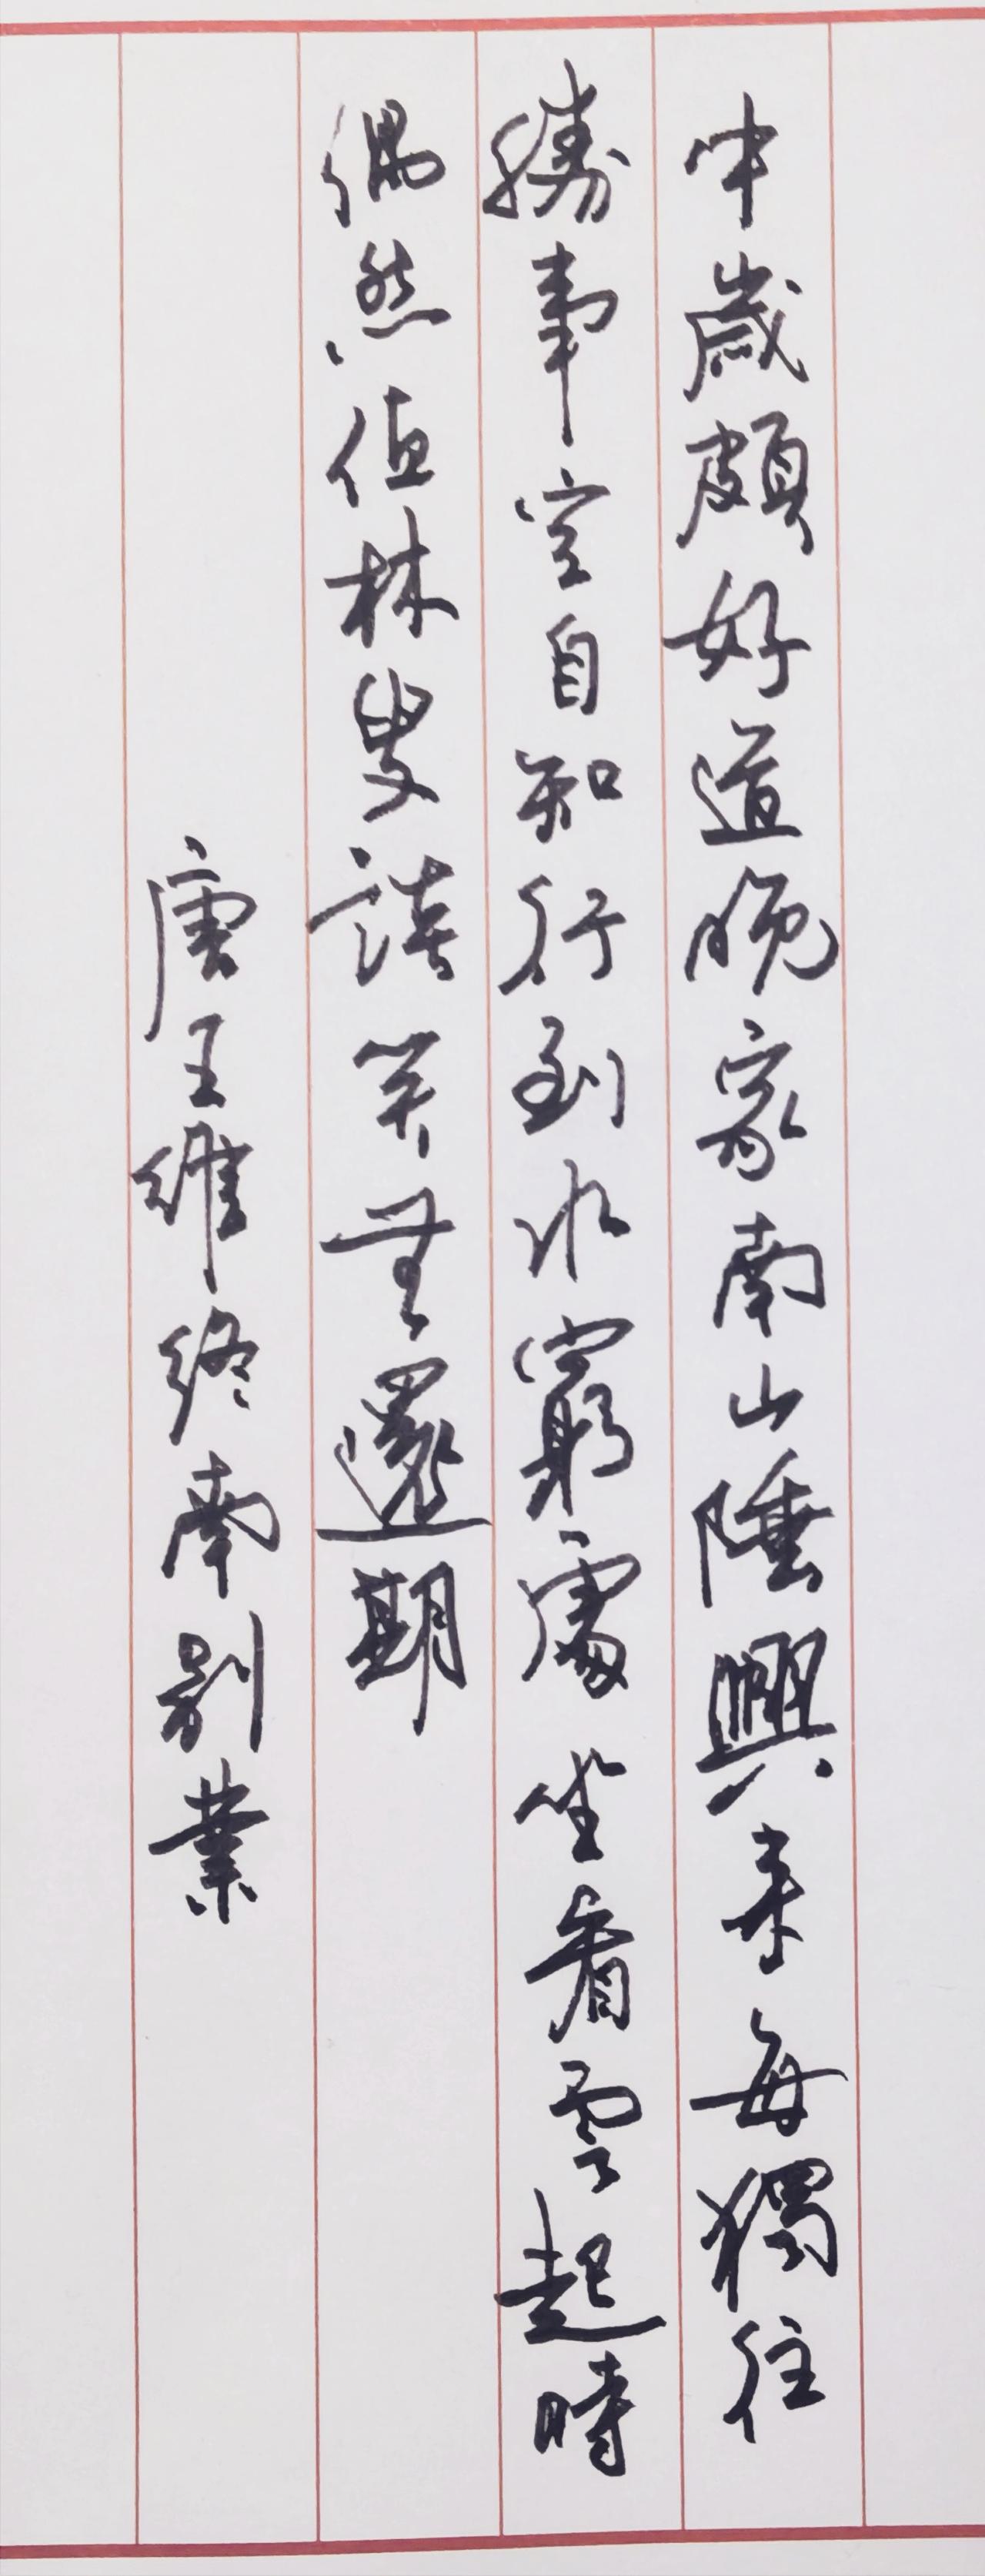 中歲頗好道晚家南山陲興来每獨往
勝事空自知行到水窮處坐看雲起時
偶然值林叟談笑無還期
唐王維終南别業